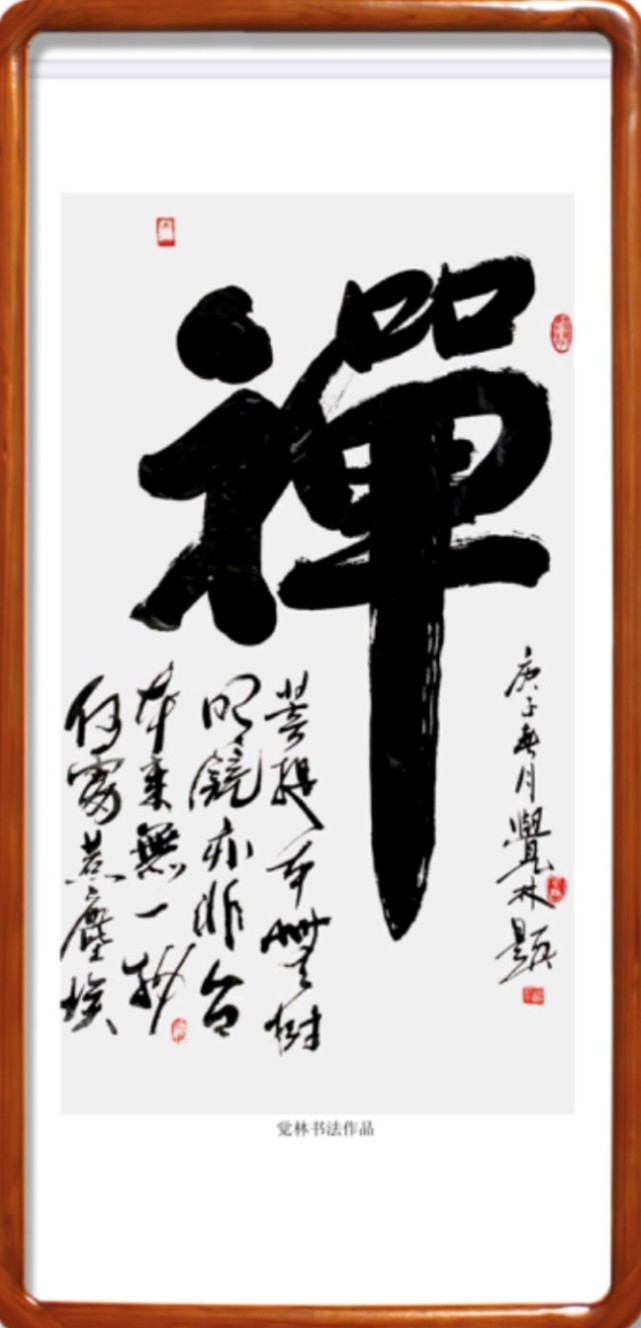 禪
菩提本無樹
明鏡亦非台
本来無一物
何處惹塵埃
庚子春月覺林題
觉林书法作品